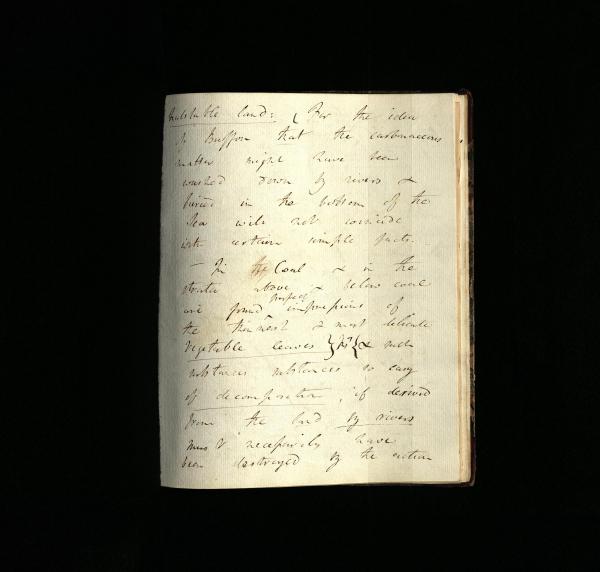 habitable land: (For the idea
of Buffon that the carbonaceous
matter might have been
washed down by rivers &
buried in the bottom of the
Sea will not coincide
with certain simple facts.
— In the Coal & in the
strata above & below coal
are found perfect impressions of
the thinnest & most delicate
vegetable leaves } { & such
substances substances so easy
of decomposition, if derived
from the land by rivers
must necessarily have
been destroyed by the action